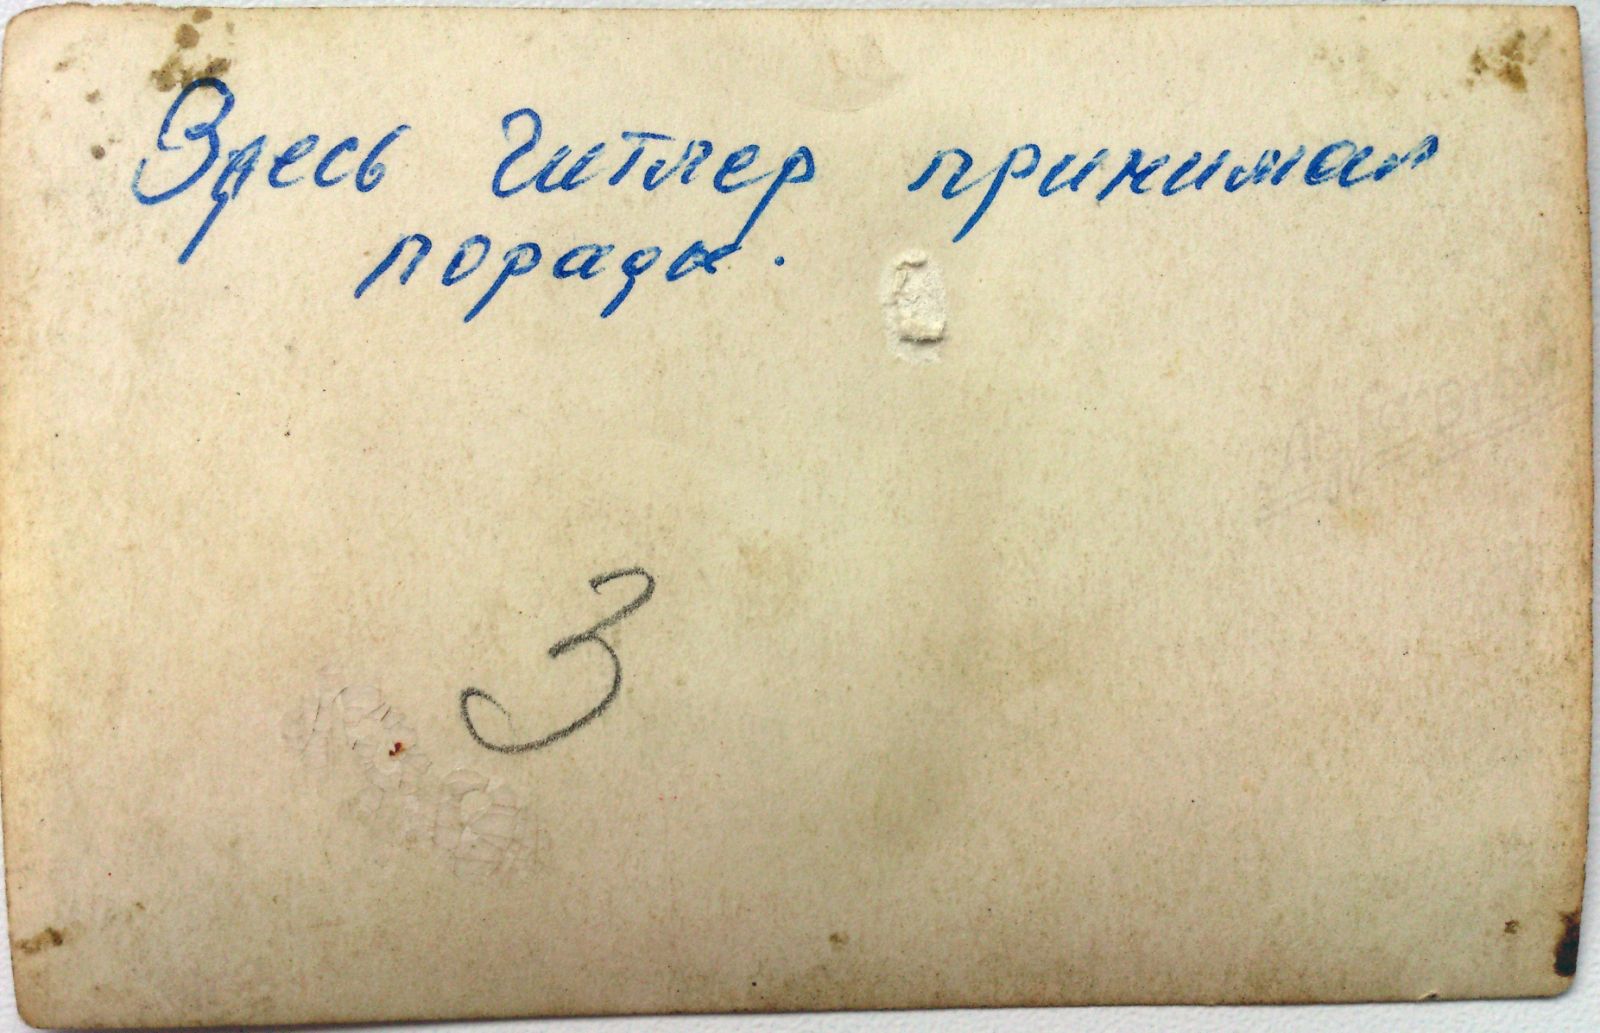 Здесь Гитлер принимал
порады.
3